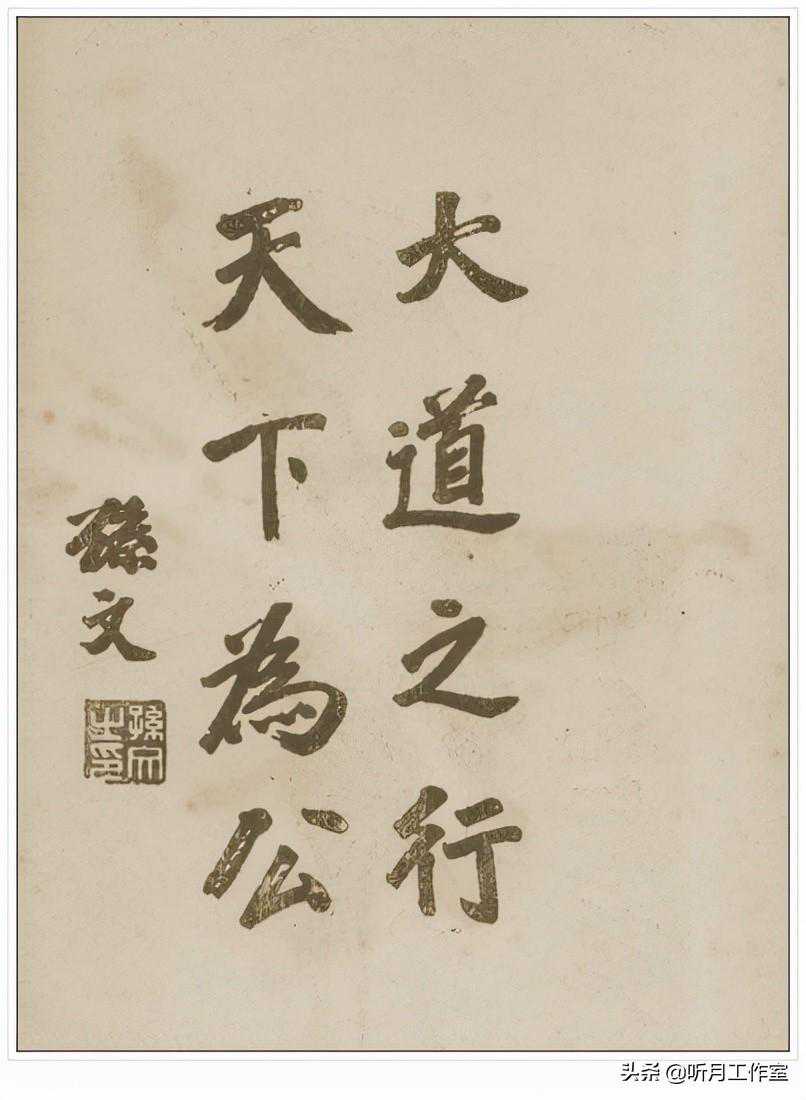 大道之行
天下為公
孫文
孫文之印
头条 @听月工作室